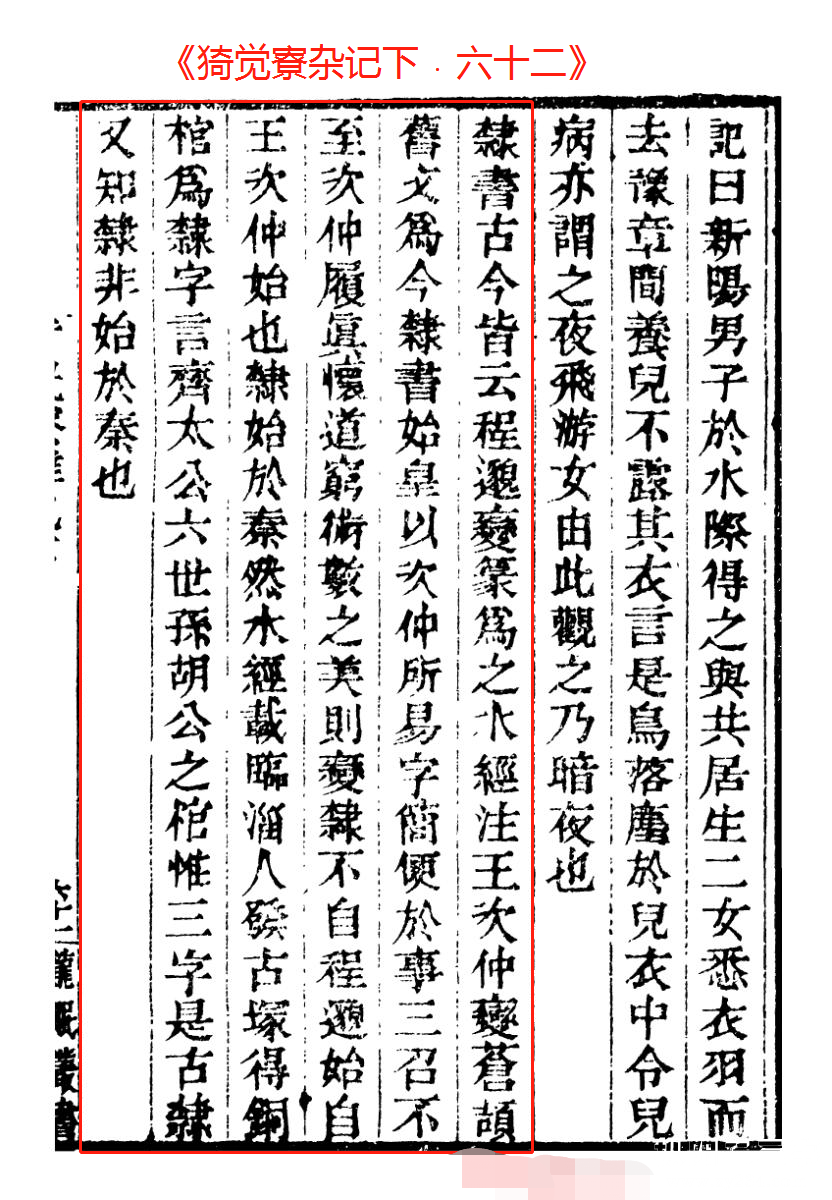 《猗觉寮杂记下．六十二》
記曰新陽男子於水際得之與共居生二女悉衣羽而
去豫章間養兒不露其衣言是鳥落塵於兒衣中令兒
病亦謂之夜飛游女由此觀之乃暗夜也
隸書古今皆云程邈變篆爲之水經注王次仲變蒼頡
舊文爲今隸書始皇以次仲所易字簡便於事三召不
至次仲履眞懷道窮術數之美則變隸不自程邈始自
王次仲始也隸始於秦然水經載臨淄人發古塚得銅
棺爲隸字言齊太公六世孫胡公之棺惟三字是古隸
又知隸非始於秦也
六十二 叢書